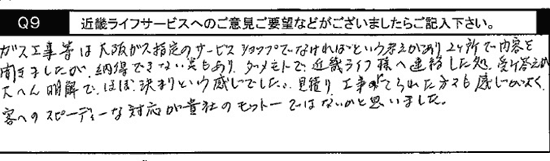 Q9 近畿ライフサービスへのご意見ご要望などがございましたらご記入下さい。
ガス工事等は大阪ガス指定のサービスショップでなければという考えがあり2ヶ所で内容を
聞きましたが、納得できない点もあり、ダメモトで、近畿ライフ様へ連絡した処、受け答えが
大へん明解で、ほぼ決まりという感じでした。見積り、工事が来られた方々も感じがよく、
客へのスピーディーな対応が貴社のモットーではないかと思いました。